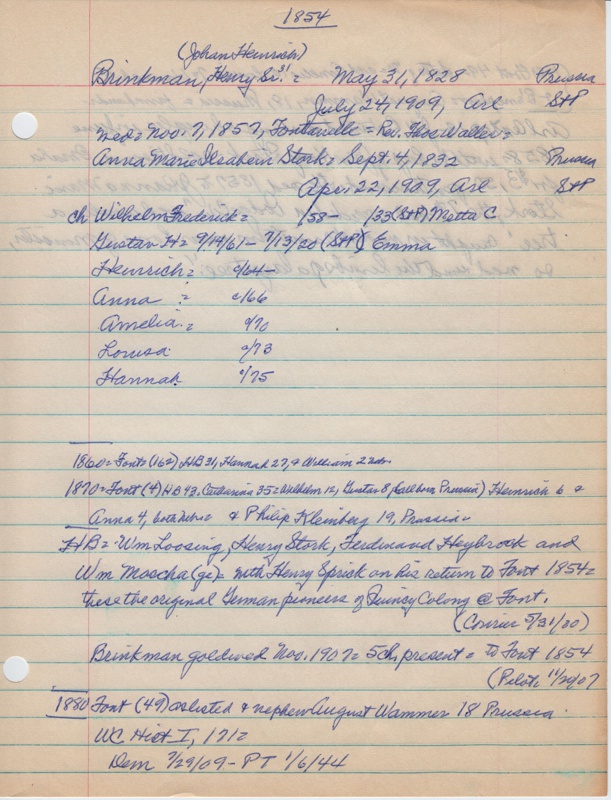 1854
(Johan Heinrich)
Brinkman, Henry Sr. 31 = May 31, 1828 Prussia
July 24, 1909, Arl StP
Med = Nov. 7, 1857, Fontanelle = Rev.
Anna Marie Ilsabein Stork = Sept. 4, 1832 Prussia
Apr. 22, 1909, Arl StP
ch Wilhelm Frederick = /58- /33 (StP) Metta C
Gustav H = 9/14/61 - 7/13/20 (StP) Emma
Heinrich = c/64-
Anna = c/66
Amelia = c/70
Louisa c/73
Hannah c/75
1860 = Font (162) HB 31, Hannah 27, & William 2
1870 = Font (4) HB 43, Catharina 35 = Wilhelm 12, Gustav 8 (all born Prussia) Heinrich 6 &
Anna 4, both & Philip Kleinberg 19, Prussia
HB = Wm Loosing, Henry Stork, Ferdinand Heybrock and
Wm Moscha (ge) with Henry Sprick on his return to Font 1854 =
these the original German pioneers of Quincy Colony @ Font.
(Courier 5/31/20)
Brinkman goldwed Nov. 1907 = 5 ch present = to Font 1854
(Pilot, 11/ /07
1880 Font (49) as listed & nephew August Wammer 18 Prussia
WC Hist I, 171 =
Dem 7/29/09 - PT 1/6/44